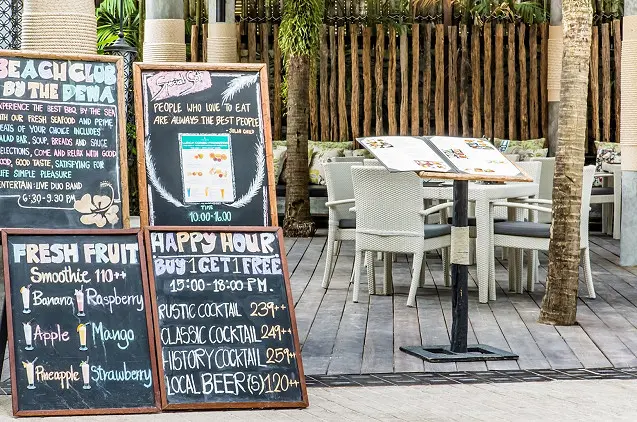 BEACH CLUB
BY THE PENA
EXPERIENCE THE BEST BBQ BY THE SEA
WITH OUR FRESH SEAFOOD AND PRIME
MEATS OF YOUR CHOICE INCLUDES
SALAD BAR, SOUP, BREADS AND SAUCE
SELECTIONS, COME AND RELAX WITH GOOD
FOOD, GOOD TASTE, SATISFYING FOR
SIMPLE PLEASURE
ENTERTAIN: LIVE DUO BAND
6:30-9.30 PM
PEOPLE WHO LOVE TO EAT
ARE ALWAYS THE BEST PEOPLE
- JULIA CHILD
TIME
10.00-16.00
FRESH FRUIT
Smoothie 110++
Banana Raspberry
Apple Mango
Pineapple Strawberry
HAPPY HOUR
BUY 1 GET 1 FREE
15:00-18:00 PM.
RUSTIC COCKTAIL 239++
CLASSIC COCKTAIL 249++
HISTORY COCKTAIL 259++
LOCAL BEER (S) 120++